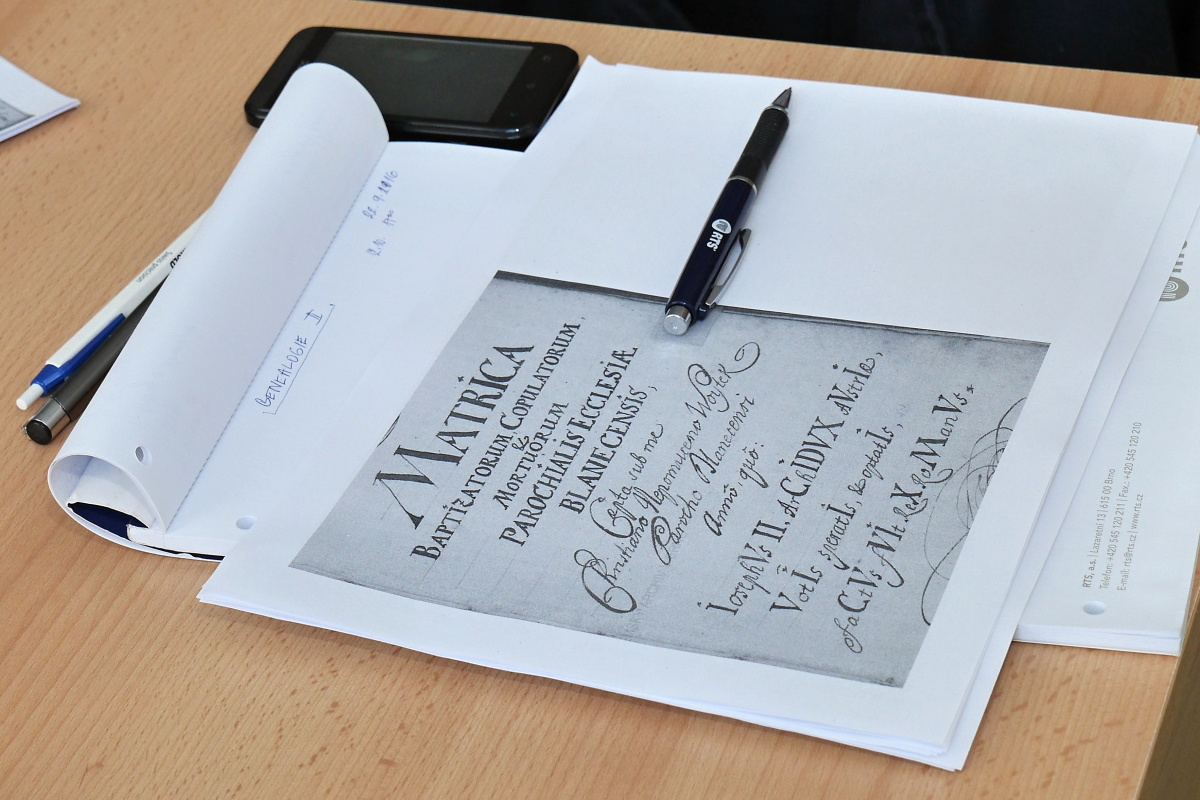 22.9.2016
GENEALOGIE II.
MATRICA
BAPTIZATORUM COPULATORUM,
&
MORTUORUM
PAROCHIALIS ECCLESIÆ
BLANECENSIS,
Cæpta sub me
Christiano Nepomuceno Woytek
Parocho Blanecensi
Anno, quo:
IosephVs II. ArChIDVX AVstriæ,
VotIs speratIs, & optatIs,
faCtVs fVIt ReX RoManVs.
RTS
RTS
RTS, a.s. | Lazaretní 13 | 615 00 Brno
Telefon: +420 545 120 211 | Fax.: +420 545 120 210
E-mail: rts@rts.cz | www.rts.cz